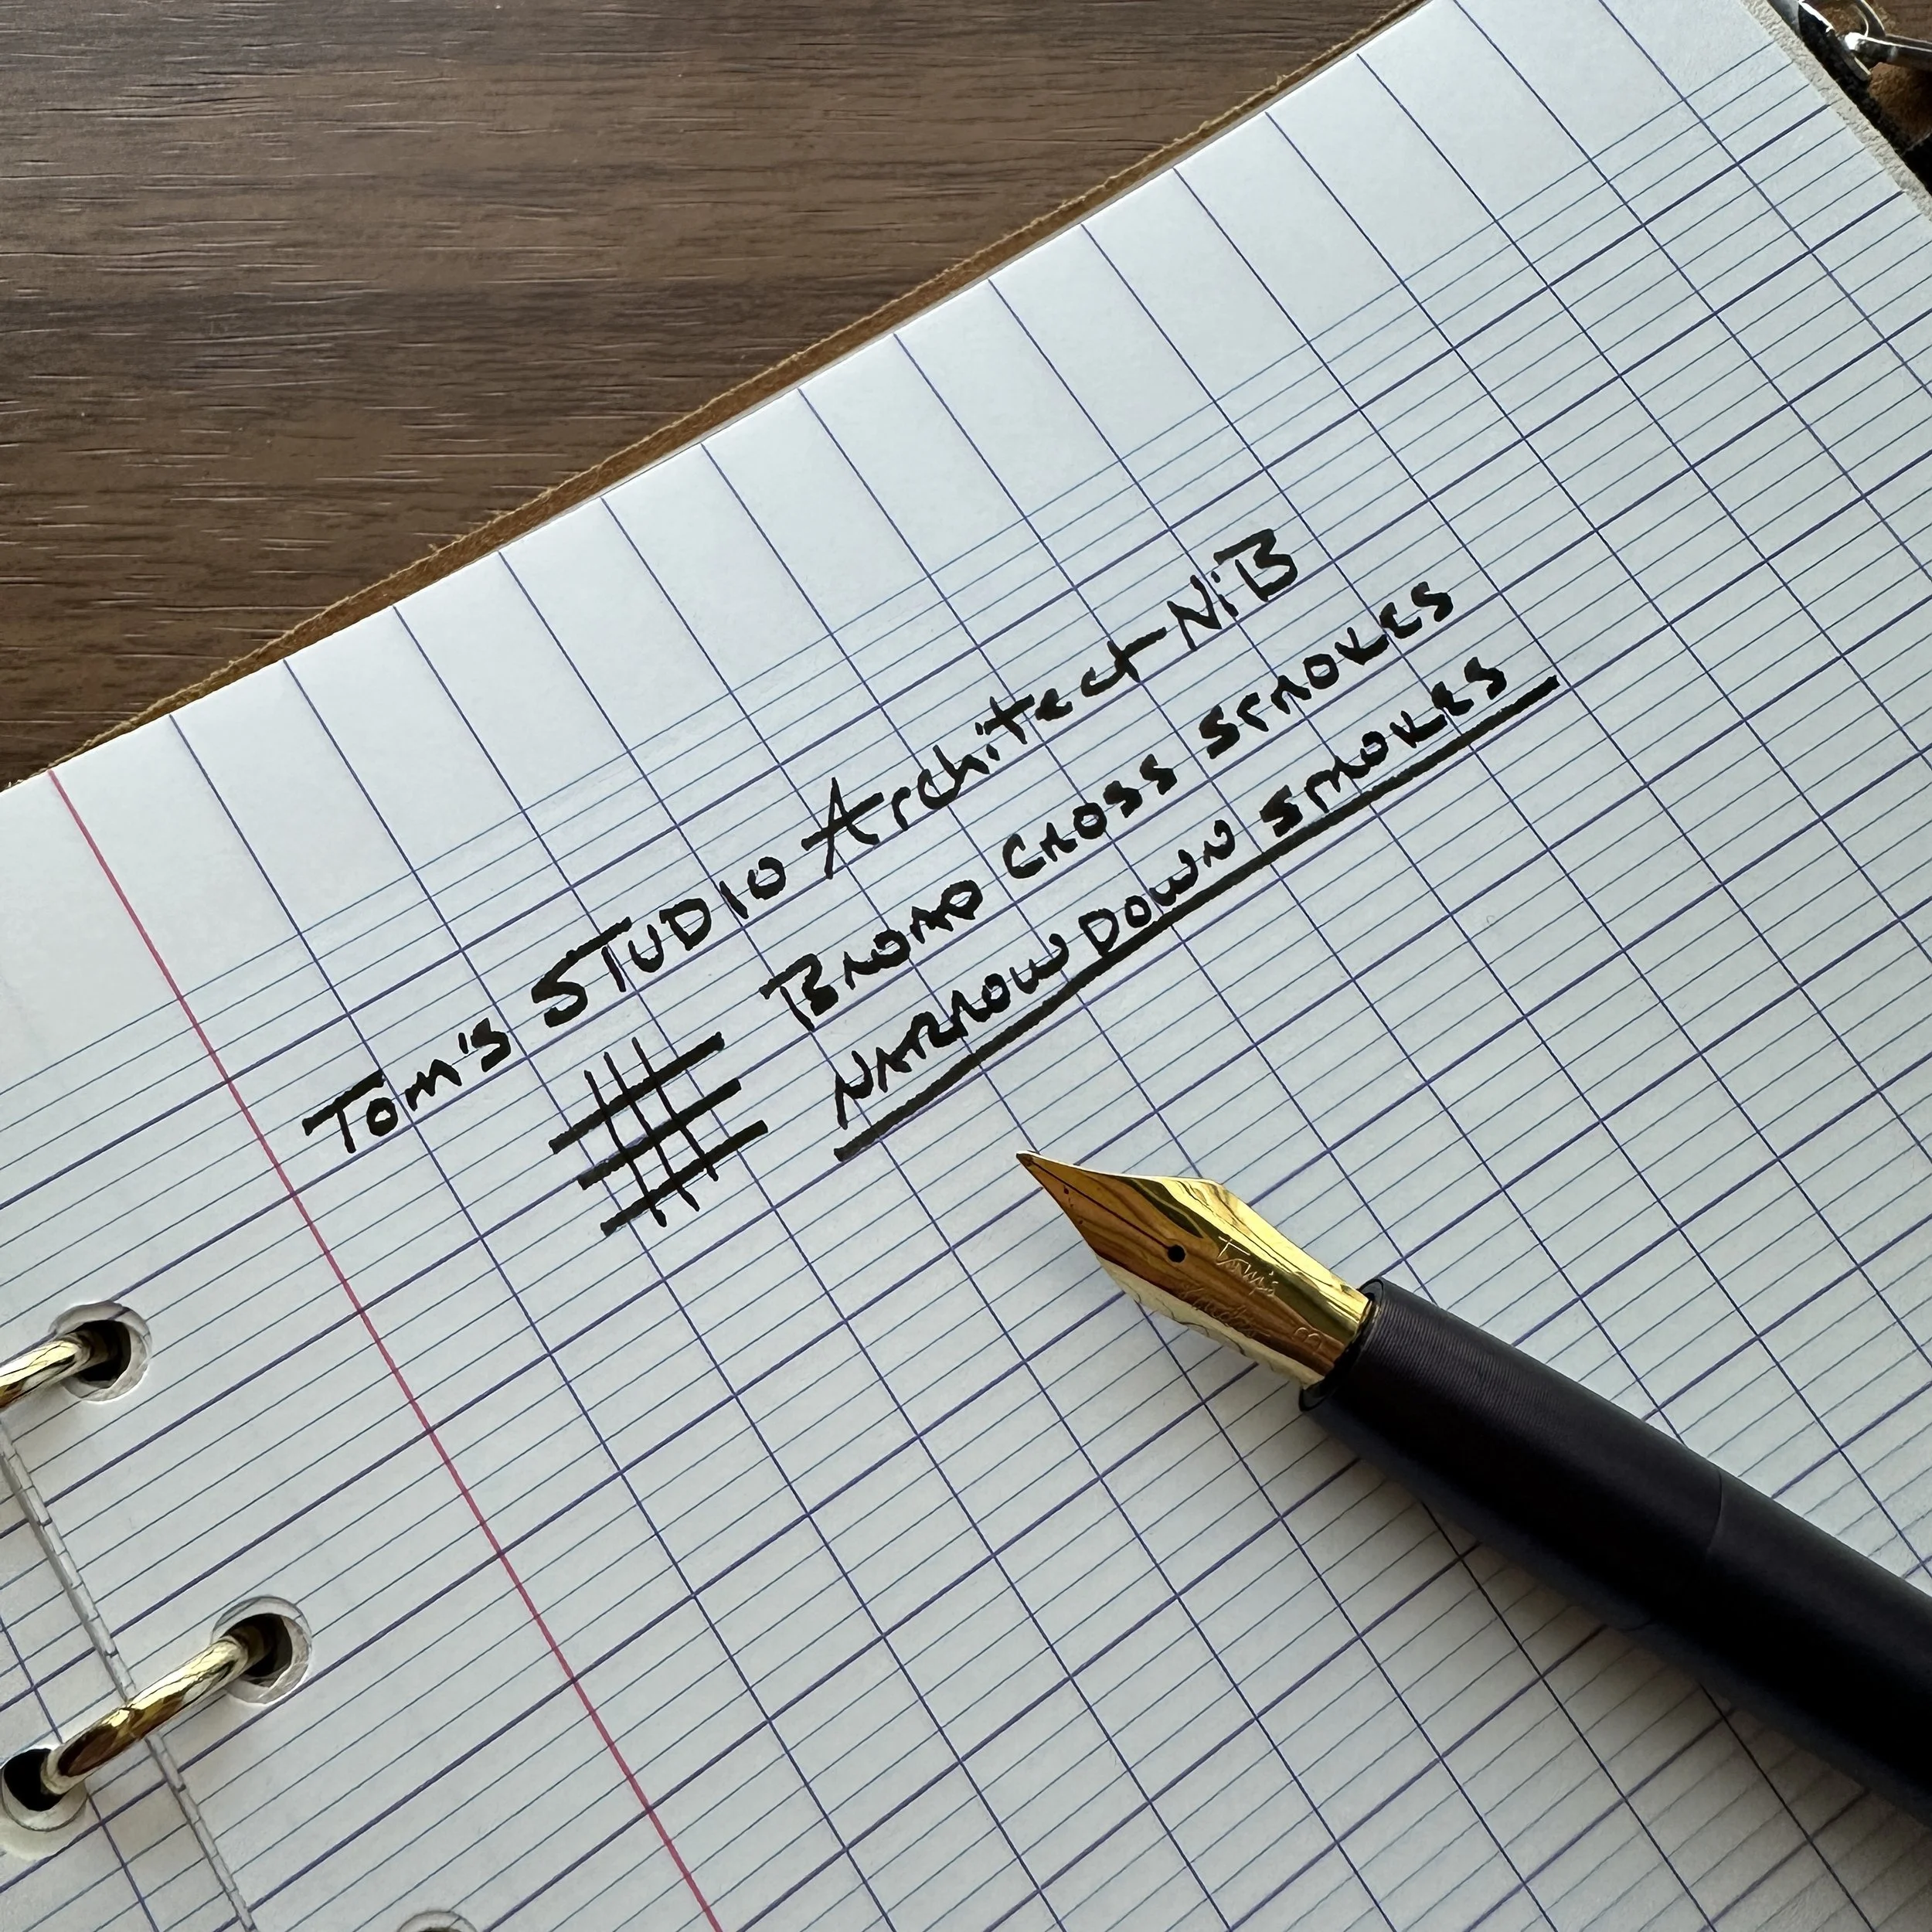 Tom's STUDIO Architect NiB
BROAD CROSS STROKES
NARROW DOWN STROKES
Tom's
Studio
B